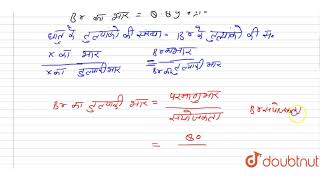 Br का भार = 
धातु के तुल्यांको की संख्या = Br के तुल्यांको की सं०
x का भार / x का तुल्यांकी भार = Br का भार / Br का तुल्यांकी भार
Br का तुल्यांकी भार = परमाणुभार / संयोजकता
Br संयोजकता
= 80 /
doubtnut